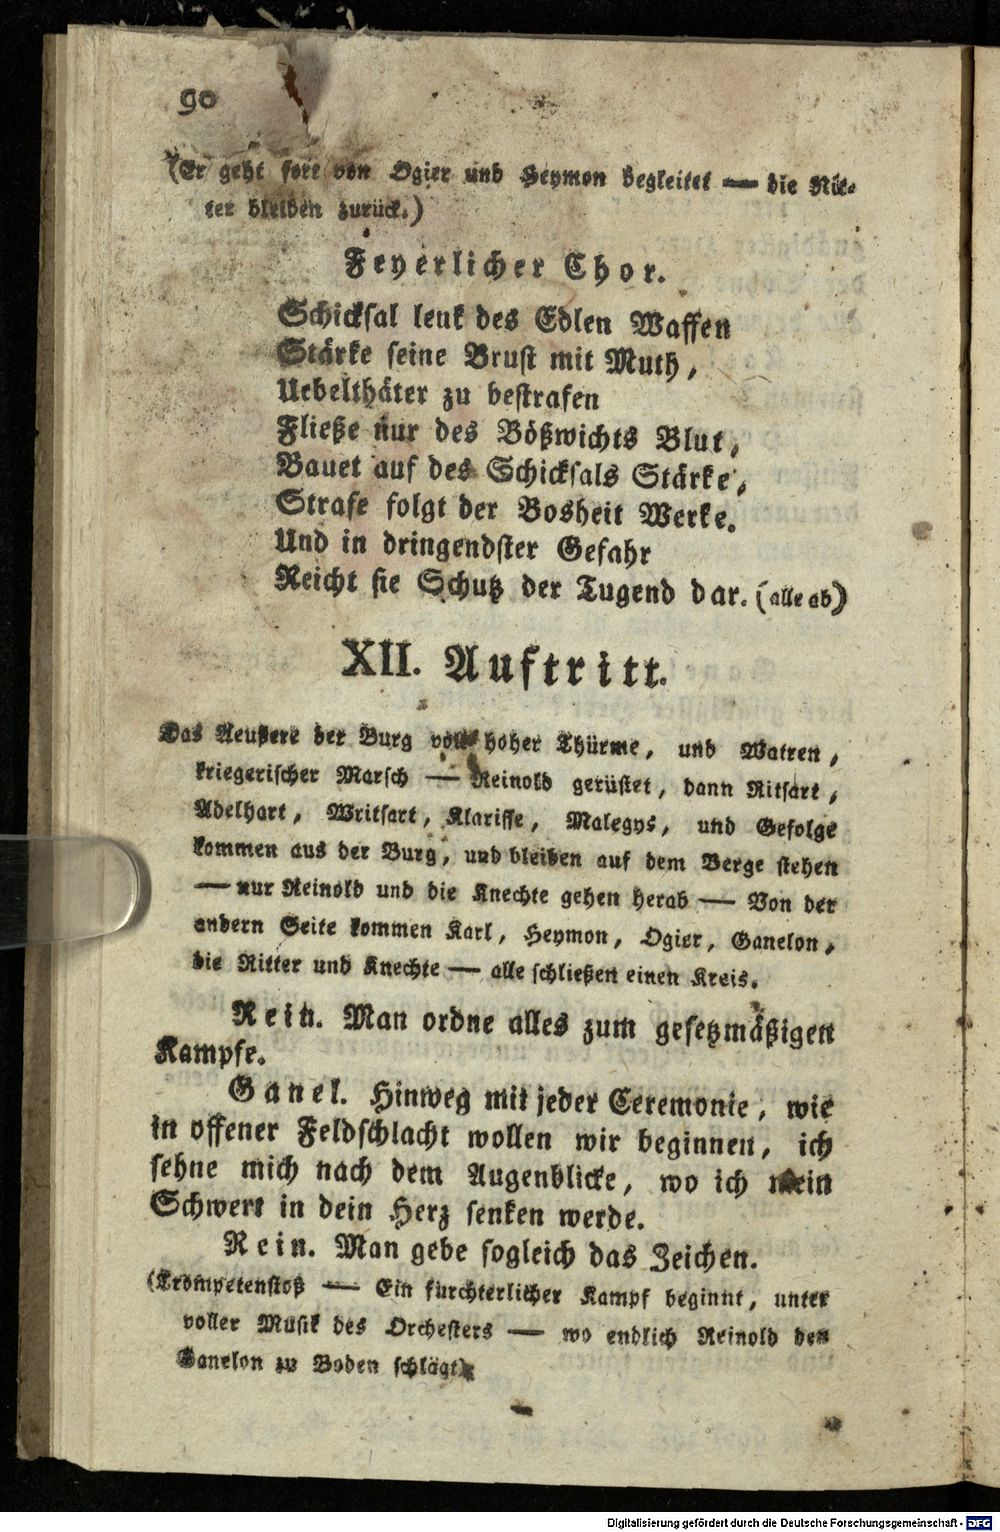 90
(Er geht fort von Ogier und Heymon begleitet — die Rit-
ter bleiben zurück.)
Feyerlicher Chor.
Schicksal lenk des Edlen Waffen
Stärke seine Brust mit Muth,
Uebelthäter zu bestrafen
Fließe nur des Bößwichts Blut,
Bauet auf des Schicksals Stärke,
Strafe folgt der Bosheit Werke.
Und in dringendster Gefahr
Reicht sie Schutz der Tugend dar. (alle ab)
XII. Auftritt.
Das Aeußere der Burg voll hoher Thürme, und Watren,
kriegerischer Marsch — Reinold gerüstet, dann Ritsart,
Adelhart, Writsart, Klarisse, Malegys, und Gefolge
kommen aus der Burg, und bleiben auf dem Berge stehen
— nur Reinold und die Knechte gehen herab — Von der
andern Seite kommen Karl, Heymon, Ogier, Ganelon,
die Ritter und Knechte — alle schließen einen Kreis.
Rein. Man ordne alles zum gesetzmäßigen
Kampfe.
Ganel. Hinweg mit jeder Ceremonie, wie
in offener Feldschlacht wollen wir beginnen, ich
sehne mich nach dem Augenblicke, wo ich mein
Schwert in dein Herz senken werde.
Rein. Man gebe sogleich das Zeichen.
(Trompetenstoß — Ein fürchterlicher Kampf beginnt, unter
voller Musik des Orchesters — wo endlich Reinold den
Ganelon zu Boden schlägt)
Digitalisierung gefördert durch die Deutsche Forschungsgemeinschaft - DFG